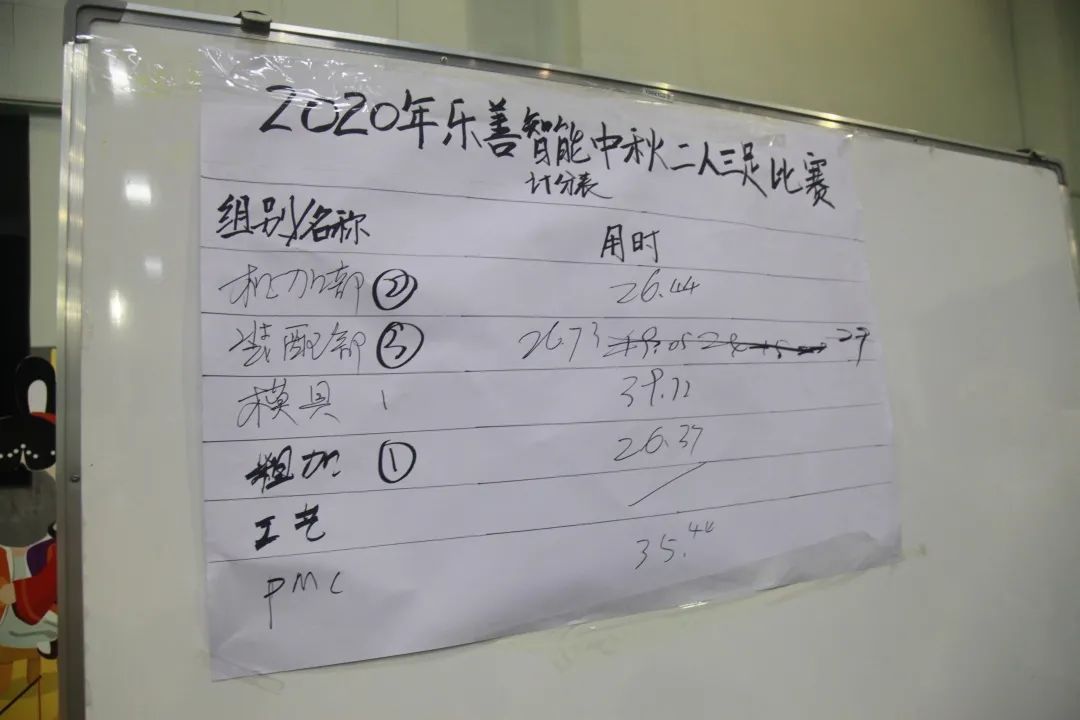 2020年乐善智能中秋二人三足比赛
计分表
组别/名称 用时
机加部 ② 26.44
装配部 ③ 26.73 27
模具 39.12
粗加 ① 26.37
工艺
PMC 35.44